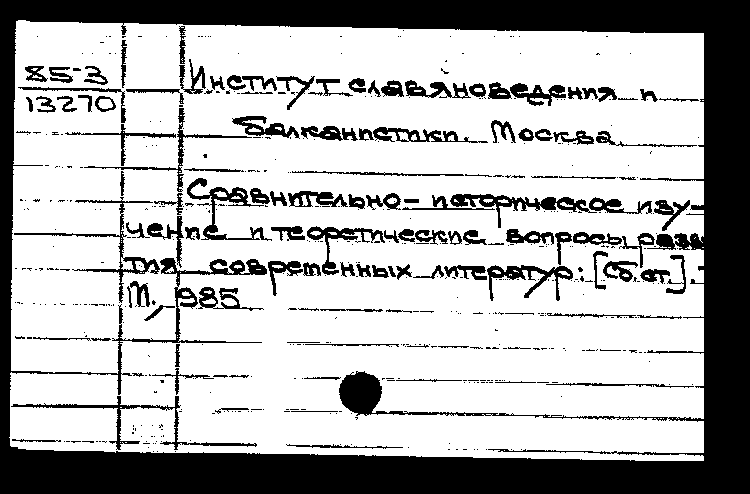 85-3
13270
Институт славяноведения и
балканистики. Москва.
Сравнительно-историческое изу-
чение и теоретические вопросы разви
тия современных литератур: [Сб. ст.].
М., 985